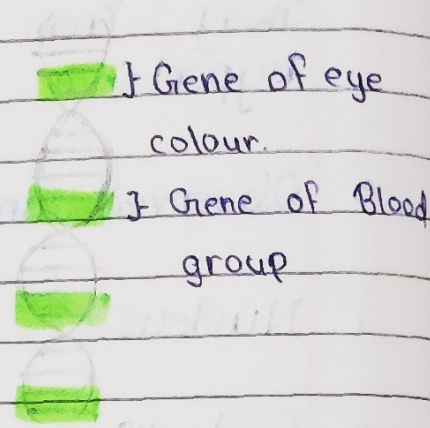 } Gene of eye
colour.
} Gene of Blood
group